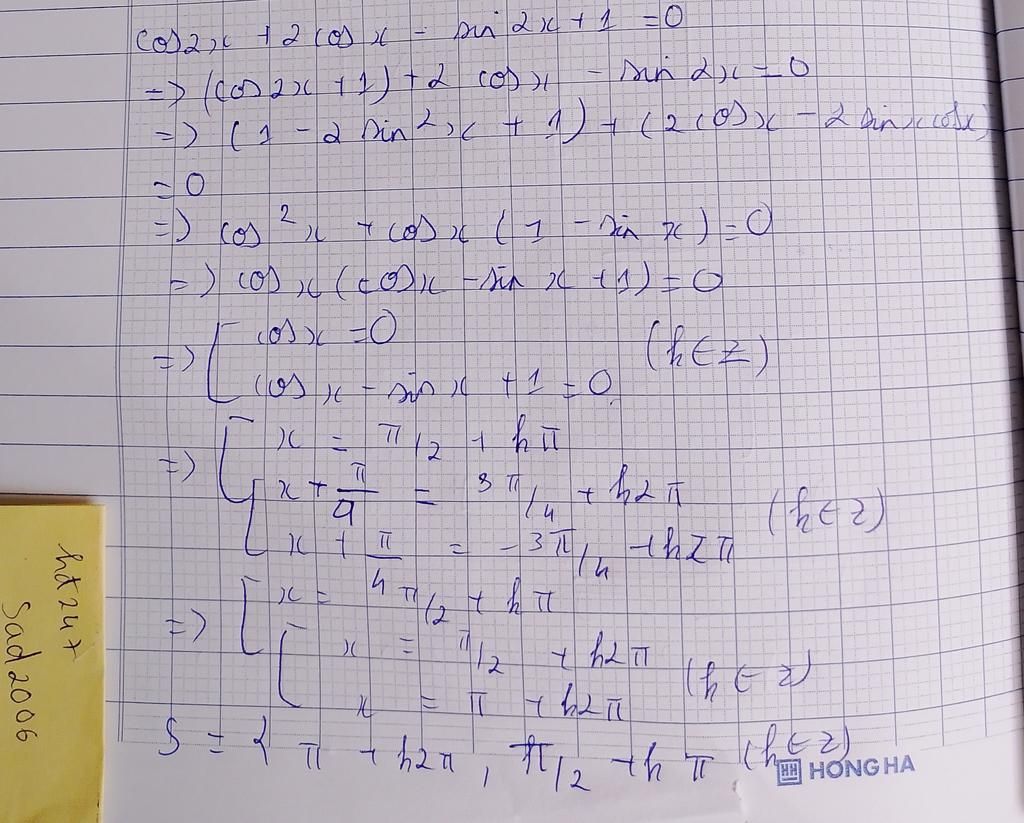 cos2x + 2cosx - sin2x + 1 = 0
=> (cos2x + 1) + 2 cosx - sin2x = 0
=> (1 - 2sin²x + 1) + (2cosx - 2sinxcosx)
= 0
=> cos²x + cosx (1 - sinx) = 0
=> cosx (cosx - sinx + 1) = 0
=> [ cosx = 0
cosx - sinx + 1 = 0 (k∈Z)
=> [ x = π/2 + kπ
[ x + π/4 = 3π/4 + k2π
x + π/4 = -3π/4 + k2π (k∈Z)
=> [ x = π/2 + kπ
[ x = π/2 + k2π
x = π + k2π (k∈Z)
S = { π + k2π, π/2 + kπ (k∈Z)
HH HONG HA
ht247
Sad2006